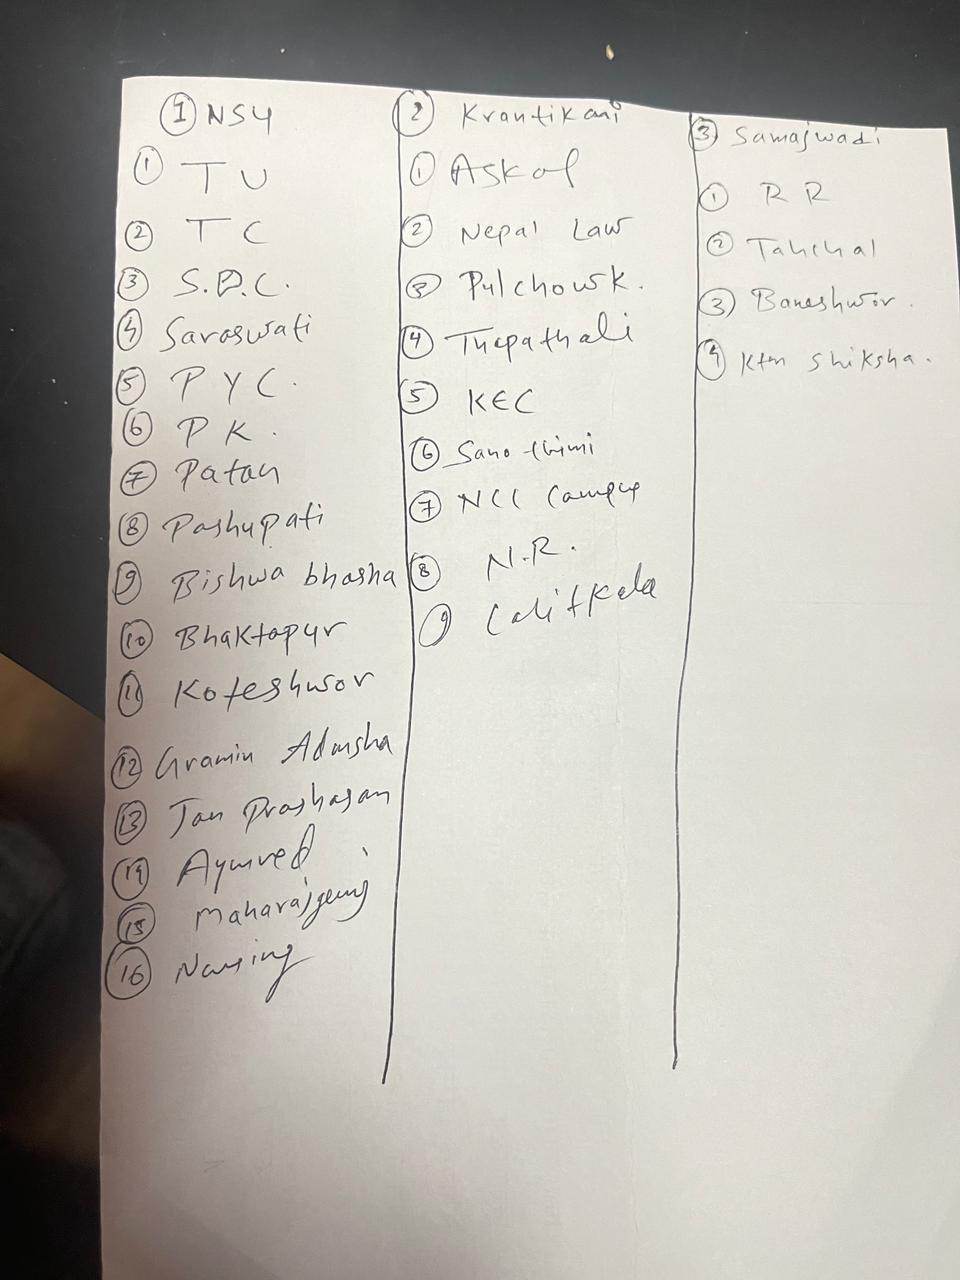 ① NSU
① TU
② TC
③ S.D.C.
④ Saraswati
⑤ PYC.
⑥ PK.
⑦ Patan
⑧ Pashupati
⑨ Bishwa bhasha
⑩ Bhaktapur
⑪ Koteshwor
⑫ Gramin Adarsha
⑬ Jan Prashasan
⑭ Ayurved
⑮ Maharajgunj
⑯ Nursing
② Krantikari
① Askol
② Nepal Law
③ Pulchowk.
④ Thapathali
⑤ KEC
⑥ Sano thimi
⑦ NCC Campus
⑧ N.R.
⑨ Lalitkala
③ Samajwadi
① RR
② Tahchal
③ Baneshwor.
④ Ktm Shiksha.